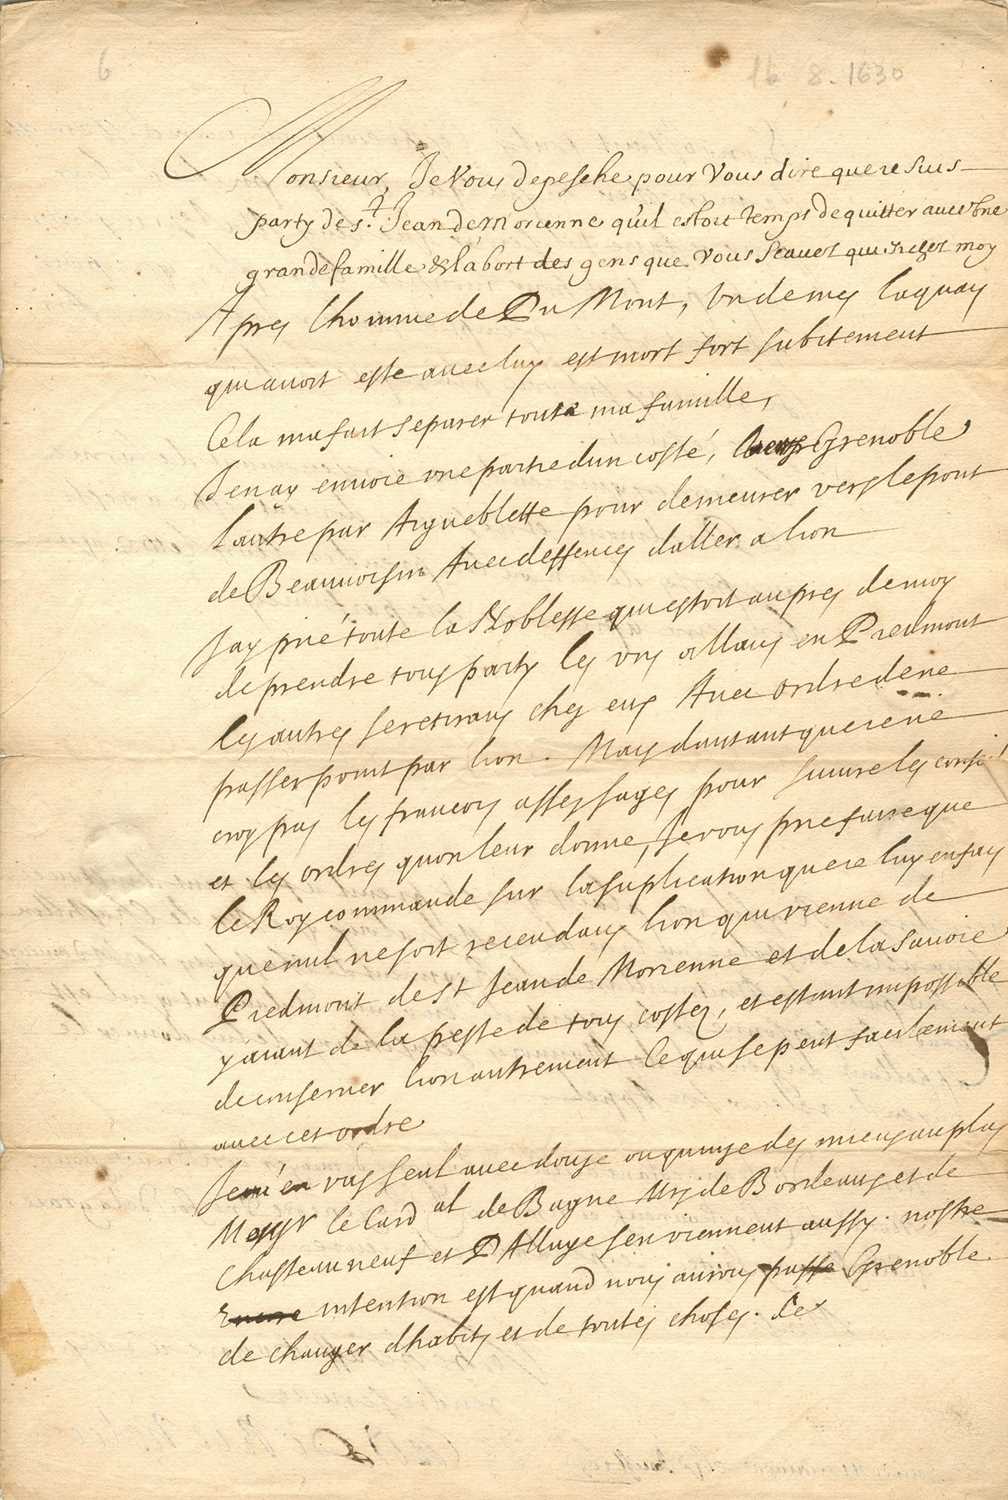 6
16 8. 1630
Monsieur, Je Vous depesche pour Vous dire que ie suis
party de st. Jean de Morienne qu'il estoit temps de quitter avec Vne
grande famille & l'abort des gens que Vous scauez qui
Apres lhomme de Du Mont, Vn de mes laquay
qui avoit esté avec luy est mort fort subitement
Cela ma fait separer toute ma famille,
Jenay envoié vne partie dun costé, vers Grenoble
lautre par Aiguebllette pour demeurer vers le pont
de Beauvoisin Avec deffences daller a lion
Jay prié toute la Noblesse qui estoit aupres de moy
de prendre tous party les vns allans en Piedmont
les autres se retirans chez eux Avec ordre de ne
passer point par lion. Mais dautant que ie ne
croy pas les francois assez sages pour suivre les
et les ordres quon leur donne, Je vous prie faire que
le Roy commande sur la suplication que ie luy en fais
que nul ne soit receu dans lion qui vienne de
Piedmont de st Jean de Morienne et de la Savoie
y aiant de la peste de tous costez, et estant impossible
de conserver lion autrement Ce qui se peut facilement
avec cet ordre
Je m'en vais seul avec douze ou quinze des miens au plus
Messrs le Card al de Bagne Mrs de Bordeaux et de
Chasteauneuf et D'Alluye s'en viennent aussy. nostre
intention est quand nous aurons passé Grenoble
de changer dhabits et de toutes choses. Le